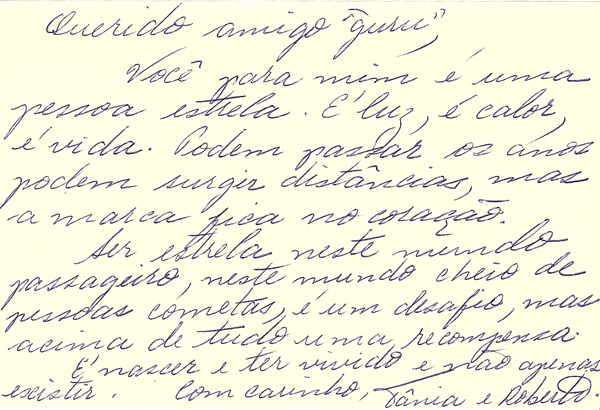 Querido amigo "guru",
Você para mim é uma
pessoa estrela. É luz, é calor,
é vida. Podem passar os anos
podem surgir distâncias, mas
a marca fica no coração.
Ser estrela neste mundo
passageiro, neste mundo cheio de
pessoas cometas, é um desafio, mas
acima de tudo uma recompensa.
É nascer e ter vivido e não apenas
existir. Com carinho, Tânia e Roberto.